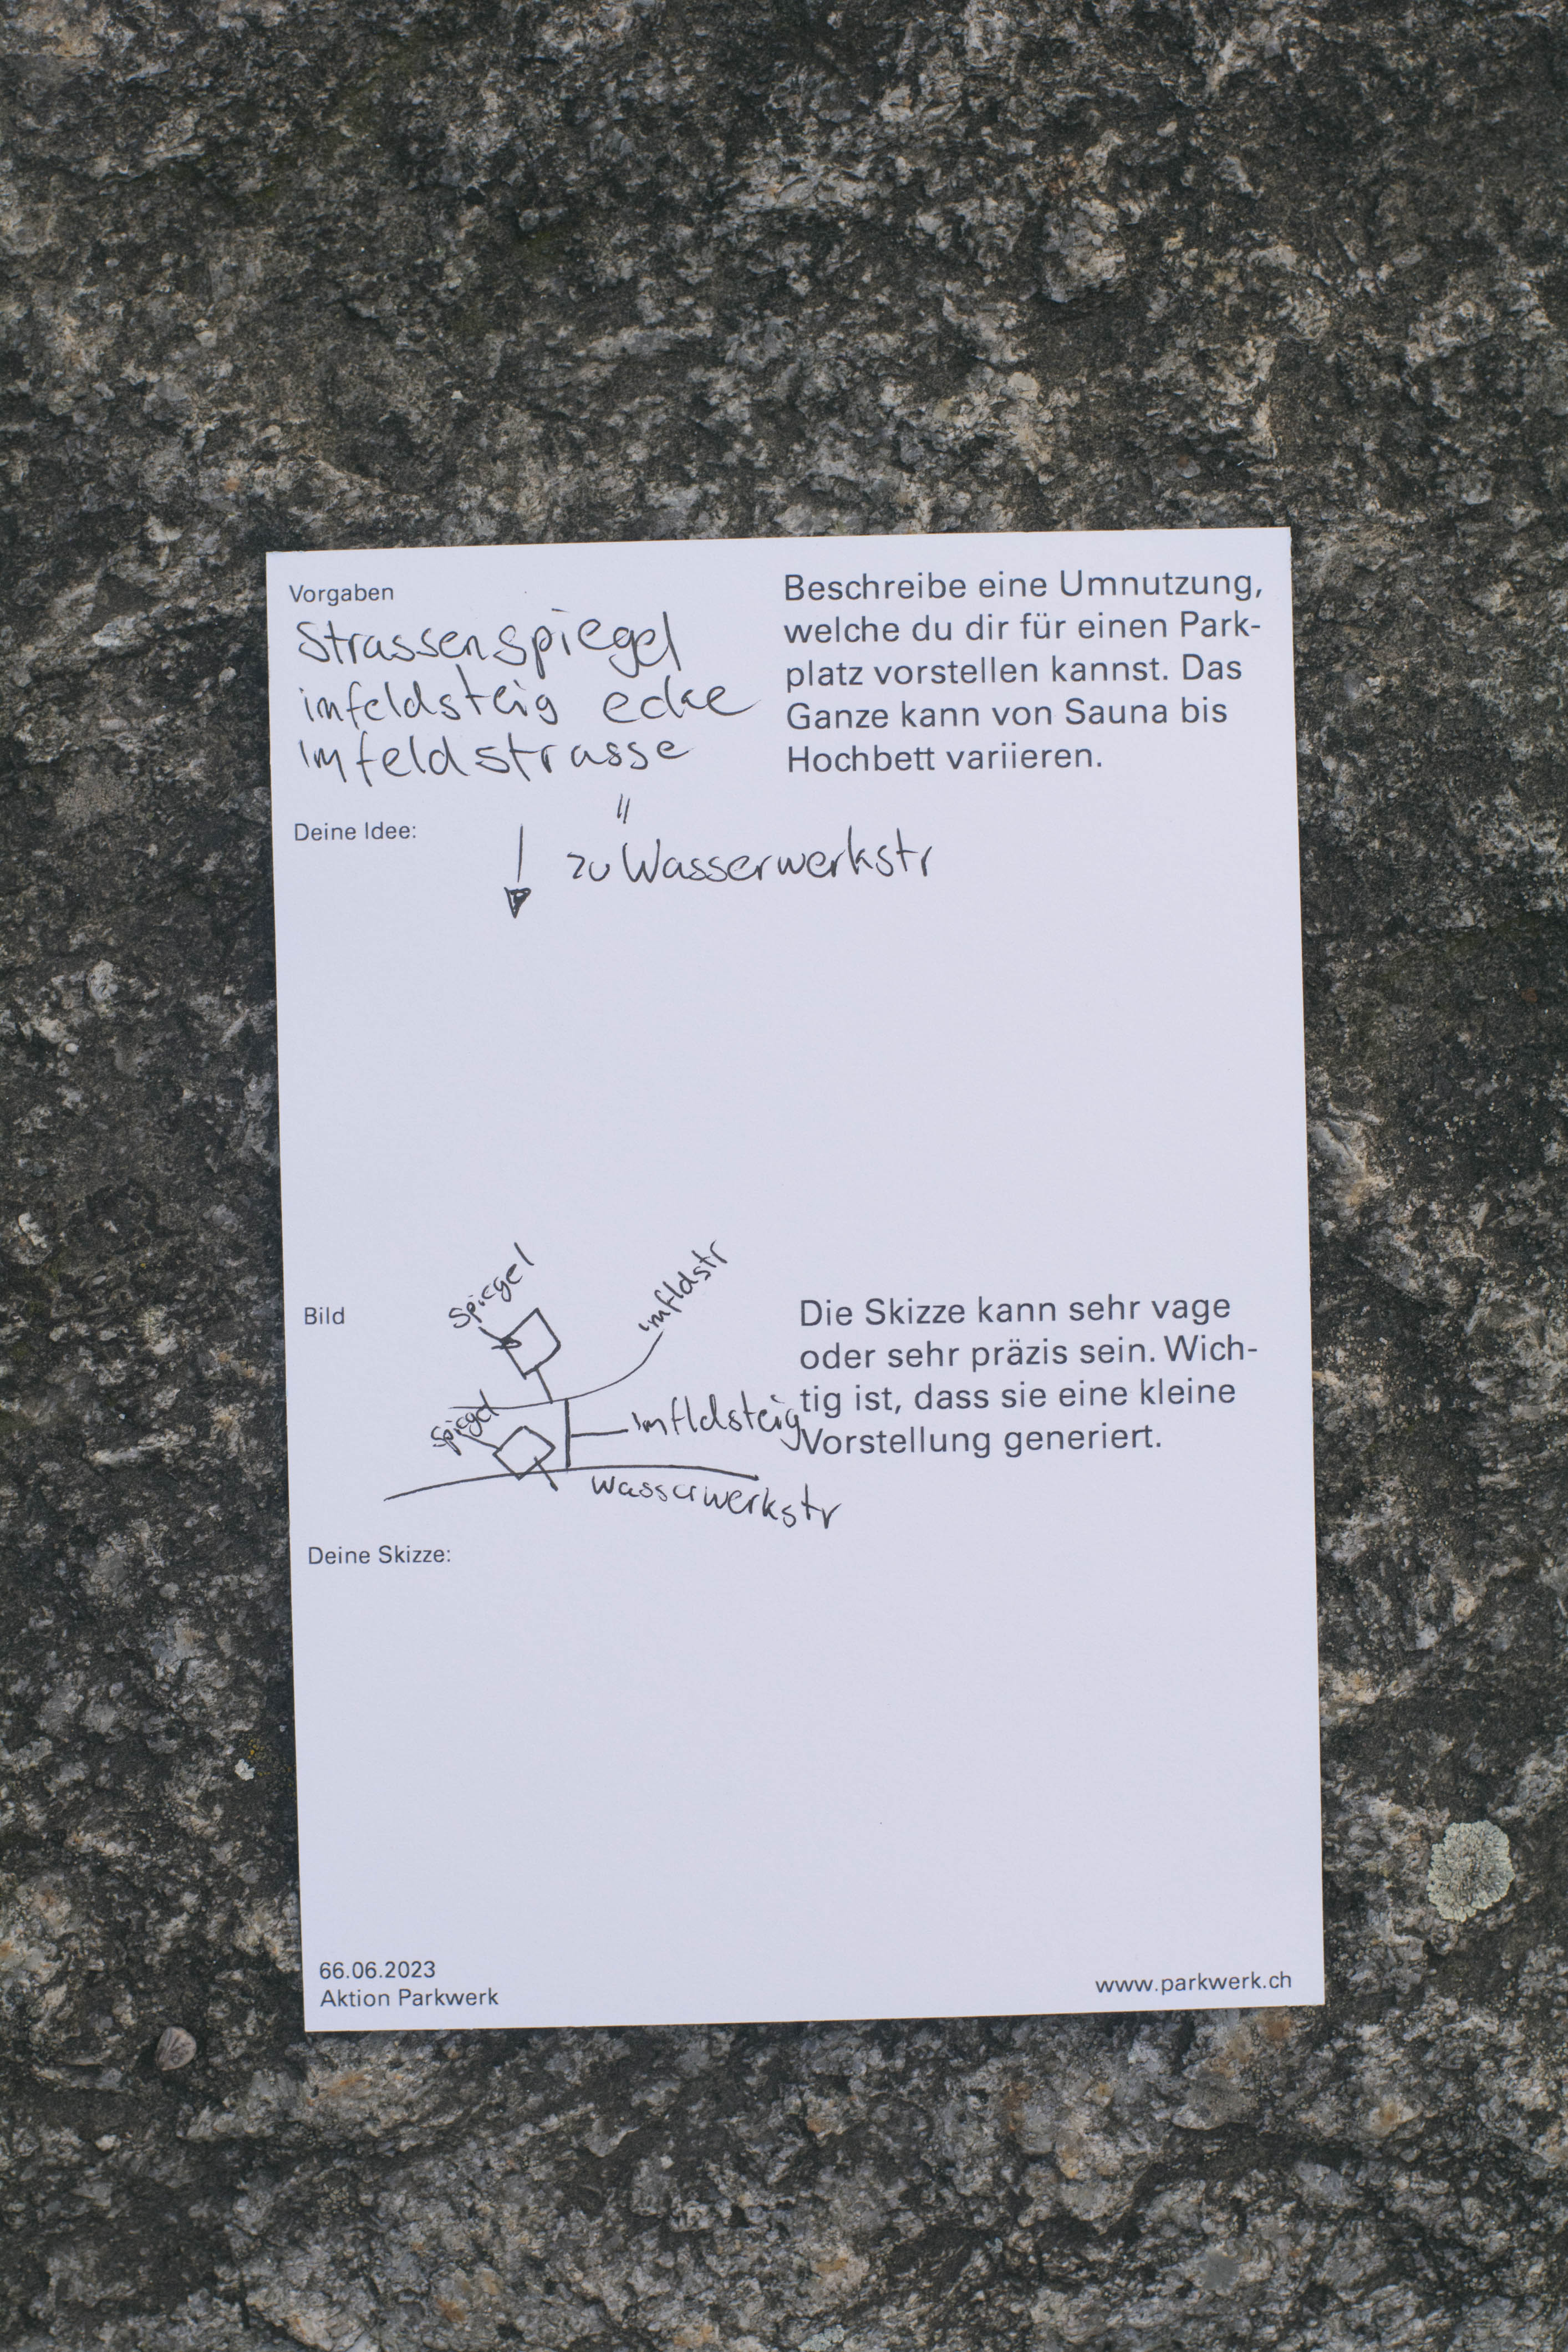 Vorgaben
Strassenspiegel
imfeldsteig ecke
Imfeldstrasse
Beschreibe eine Umnutzung,
welche du dir für einen Park-
platz vorstellen kannst. Das
Ganze kann von Sauna bis
Hochbett variieren.
Deine Idee:
"
zu Wasserwerkstr
Bild
Spiegel
imfldstr
Spiegel
imfldsteig
wasserwerkstr
Die Skizze kann sehr vage
oder sehr präzis sein. Wich-
tig ist, dass sie eine kleine
Vorstellung generiert.
Deine Skizze:
66.06.2023
Aktion Parkwerk
www.parkwerk.ch